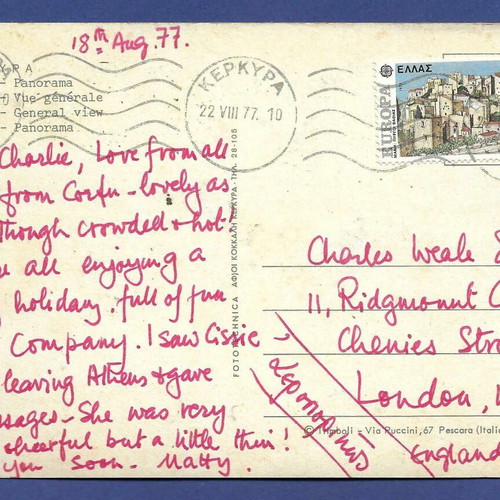 18th Aug. 77.
P A
Panorama
Vue générale
General view
Panorama
ΚΕΡΚΥΡΑ
22 VIII 77. 10
ΕΛΛΑΣ
EUROPA
Charlie, Love from all
from Corfu - lovely as
though crowded & hot!
all enjoying a
holiday. full of fun
Company. I saw Cissie
leaving Athens & gave
She was very
cheerful but a little thin!
you soon - Matty.
FOTOTECHNICA ΑΦΟΙ ΚΟΚΚΑΛΗ ΚΕΡΚΥΡΑ - ΤΗΛ. 28-105
Charles Weale
11, Ridgmount
Chenies
London,
England
Αεροπορικώς
Trimboli - Via Ruccini, 67 Pescara